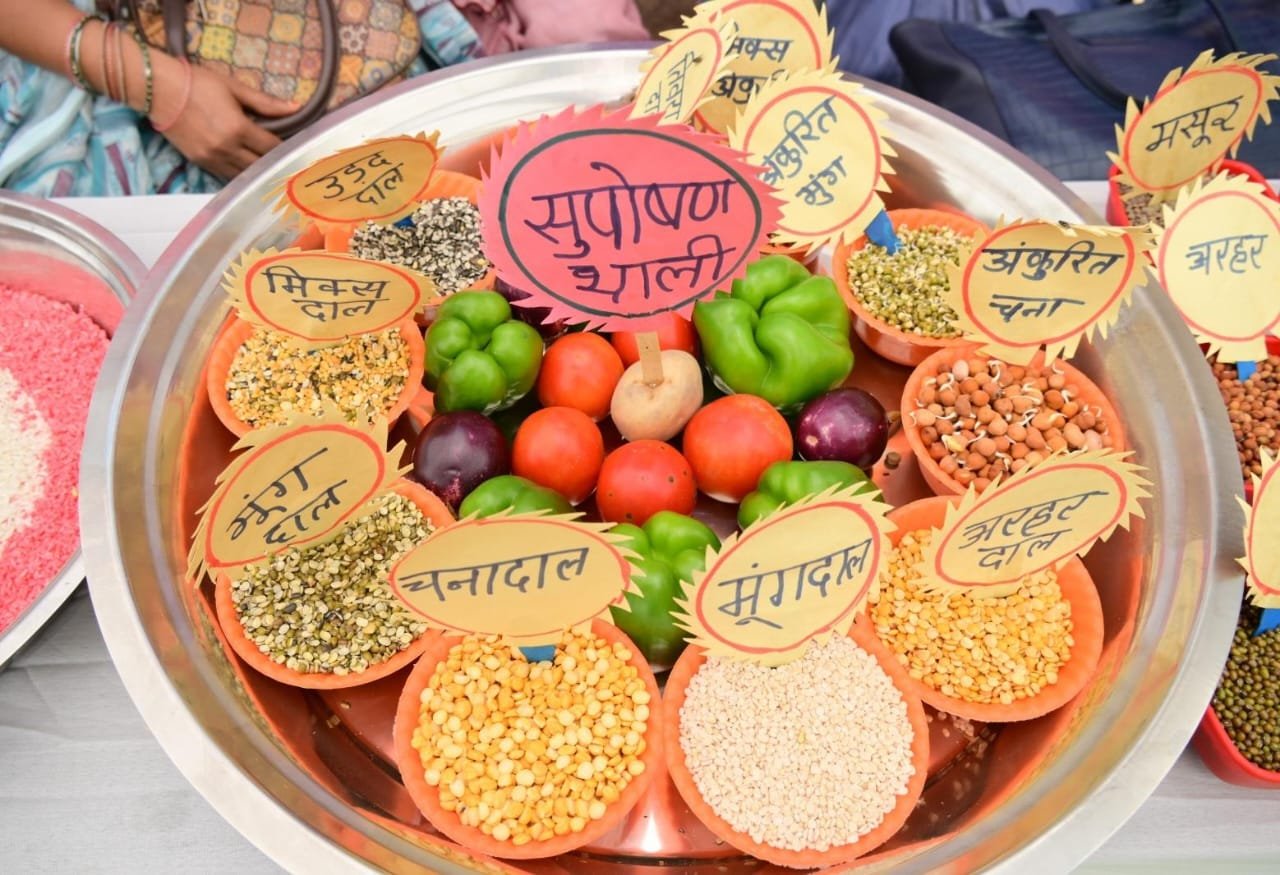 मिक्स
अंकु
अंकुरित
मुंग
मसूर
उड़द
दाल
सुपोषण
थाली
अरहर
अंकुरित
चना
मिक्स
दाल
मुंग
दाल
अरहर
दाल
चनादाल
मूंगदाल